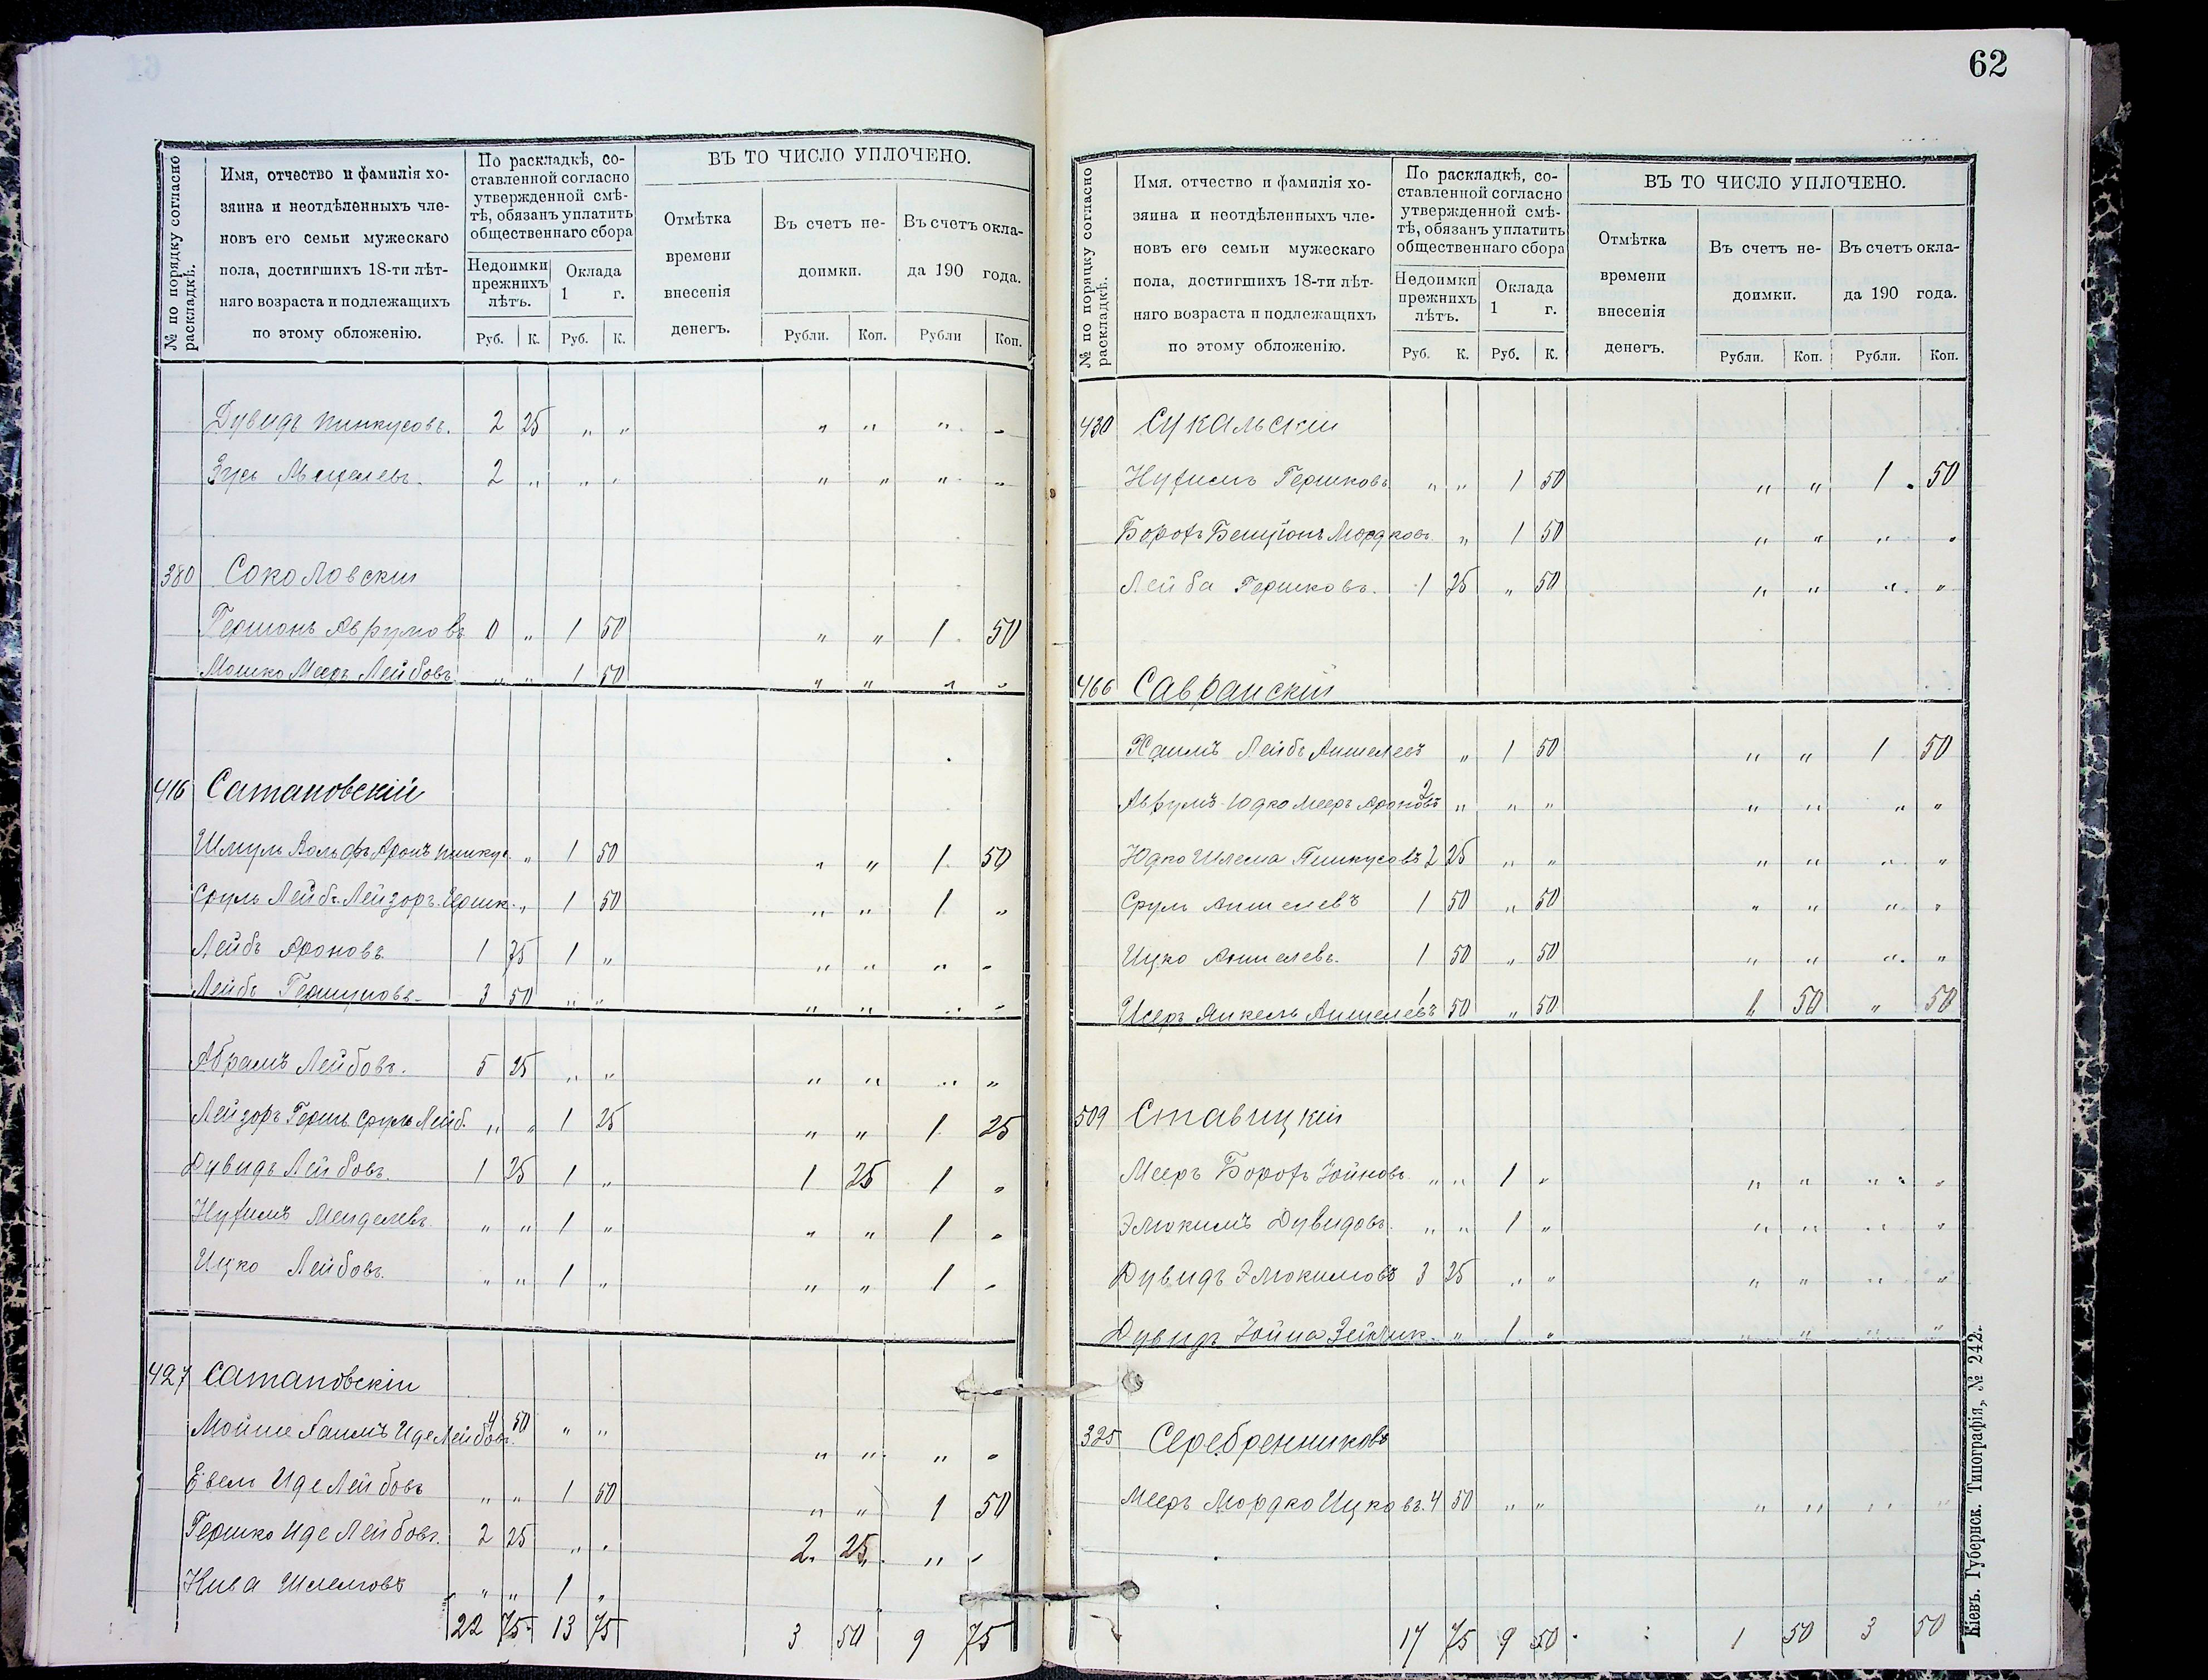 62
№ по порядку согласно раскладкѣ.
Имя, отчество и фамилія хозяина и неотдѣленныхъ членовъ его семьи мужескаго пола, достигшихъ 18-ти лѣтняго возраста и подлежащихъ по этому обложенію.
По раскладкѣ, составленной согласно утвержденной смѣтѣ, обязанъ уплатить общественнаго сбора
Недоимки прежнихъ лѣтъ.
Оклада 1 г.
Руб. К. Руб. К.
ВЪ ТО ЧИСЛО УПЛОЧЕНО.
Отмѣтка времени внесенія денегъ.
Въ счетъ недоимки.
Въ счетъ оклада 190 года.
Рубли. Коп. Рубли Коп.
Дувидъ Пинкусовъ. 2 25 „ „ „ „ „ „
Зусь 2 „ „ „ „ „ „ „
380 Соколовскіи
Гершонъ Аврумовъ 0 „ 1 50 „ „ 1 50
Мошко Меер Лейбовъ „ „ 1 50 „ „ „ „
416 Сатановскій
Шмуль Вольфъ Аронъ Пинкус. „ 1 50 „ „ 1 50
Сруль Лейбъ Лейзоръ Гершк. „ 1 50 „ „ 1 „
Лейбъ Ароновъ 1 75 1 „ „ „ „ „
Лейбъ 3 50 „ „ „ „ „ „
Абрамъ Лейбовъ. 5 25 „ „ „ „ „ „
Лейзоръ Герш. Сруль Лейб. „ „ 1 25 „ „ 1 25
Дувидъ Лейбовъ. 1 25 1 „ 1 25 1 „
Нухимъ Менделевъ „ „ 1 „ „ „ 1 „
Ицко Лейбовъ. „ „ 1 „ „ „ 1 „
427 Сатановскіи
Мойше Хаимъ Иде Лейбовъ. 4 50 „ „ „ „ „ „
Евель Иде Лейбовъ „ „ 1 50 „ „ 1 50
Гершко Иде Лейбовъ. 2 25 „ „ 2 25 „ „
Кива Шлемовъ „ „ 1 „
22 75 13 75 3 50 9 75
№ по порядку согласно раскладкѣ.
Имя. отчество и фамилія хозяина и неотдѣленныхъ членовъ его семьи мужескаго пола, достигшихъ 18-ти лѣтняго возраста и подлежащихъ по этому обложенію.
По раскладкѣ, составленной согласно утвержденной смѣтѣ, обязанъ уплатить общественнаго сбора
Недоимки прежнихъ лѣтъ.
Оклада 1 г.
Руб. К. Руб. К.
ВЪ ТО ЧИСЛО УПЛОЧЕНО.
Отмѣтка времени внесенія денегъ.
Въ счетъ недоимки.
Въ счетъ оклада 190 года.
Рубли. Коп. Рубли. Коп.
430 Сукальскіи
Нухимъ Гершковъ „ „ 1 50 „ „ 1 50
Борохъ Бенціонъ Мордковъ „ 1 50 „ „ „ „
Лейба Гершковъ. 1 75 „ 50 „ „ „ „
466 Савранскіи
Хаимъ Лейбъ Аншелевъ „ 1 50 „ „ 1 50
Аврумъ Юдко Мееръ Ароновъ 2 „ „ „ „ „ „ „
Юдко Шлема Пинкусовъ 2 25 „ „ „ „ „ „
Сруль Аншелевъ 1 50 „ 50 „ „ „ „
Ицко Аншелевъ. 1 50 „ 50 „ „ „ „
Исеръ Янкель Аншелевъ 1 50 „ 50 1 50 „ 50
509 Ставицкіи
Мееръ Борохъ Іойновъ „ „ 1 „ „ „ „ „
Элюкимъ Дувидовъ. „ „ 1 „ „ „ „ „
Дувидъ Элюкимовъ 3 25 „ „ „ „ „ „
Дувидъ Іойна „ 1 „ „ „ „ „
325 Серебренниковъ
Мееръ Мордко Ицковъ. 4 50 „ „ „ „ „ „
17 75 9 50 1 50 3 50
Кіевъ. Губернск. Типографія, № 242.